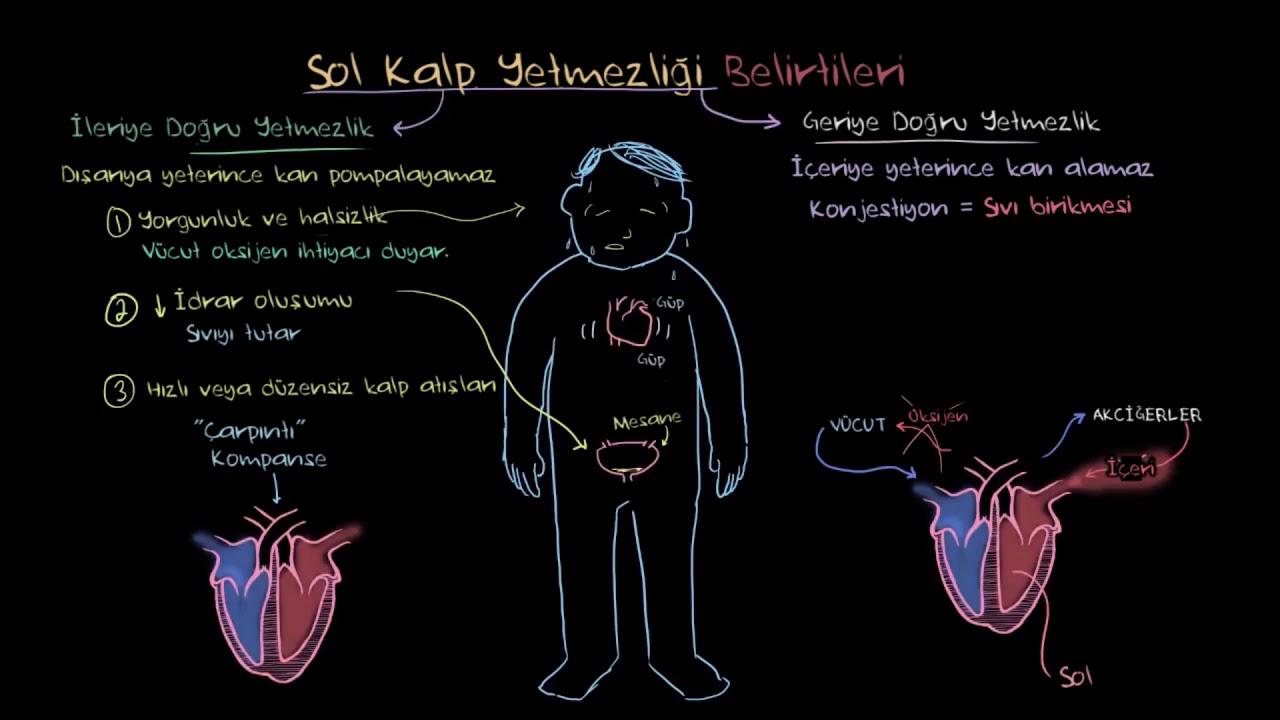 Sol Kalp Yetmezliği Belirtileri
İleriye Doğru Yetmezlik
Dışarıya yeterince kan pompalayamaz
1 Yorgunluk ve halsizlik
Vücut oksijen ihtiyacı duyar.
2 ↓ İdrar oluşumu
Sıvıyı tutar
3 Hızlı veya düzensiz kalp atışları
"Çarpıntı"
Kompanse
Güp
Güp
Mesane
Geriye Doğru Yetmezlik
İçeriye yeterince kan alamaz
Konjestiyon = Sıvı birikmesi
VÜCUT
Oksijen
AKCİĞERLER
İçeri
Sol